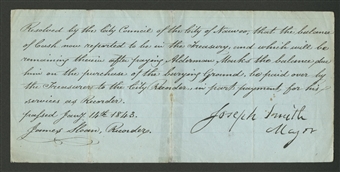 Resolved by the City Council of the City of Nauvoo, that the balance
of Cash now reported to be in the Treasury, and which will be
remaining therein after paying Alderman Marks the balance due
him on the purchase of the burying Ground, be paid over by
the Treasurer to the City Recorder, in part payment, for his
services as Recorder.
passed Jany 14th 1843.
James Sloan, Recorder.
Joseph Smith
Mayor